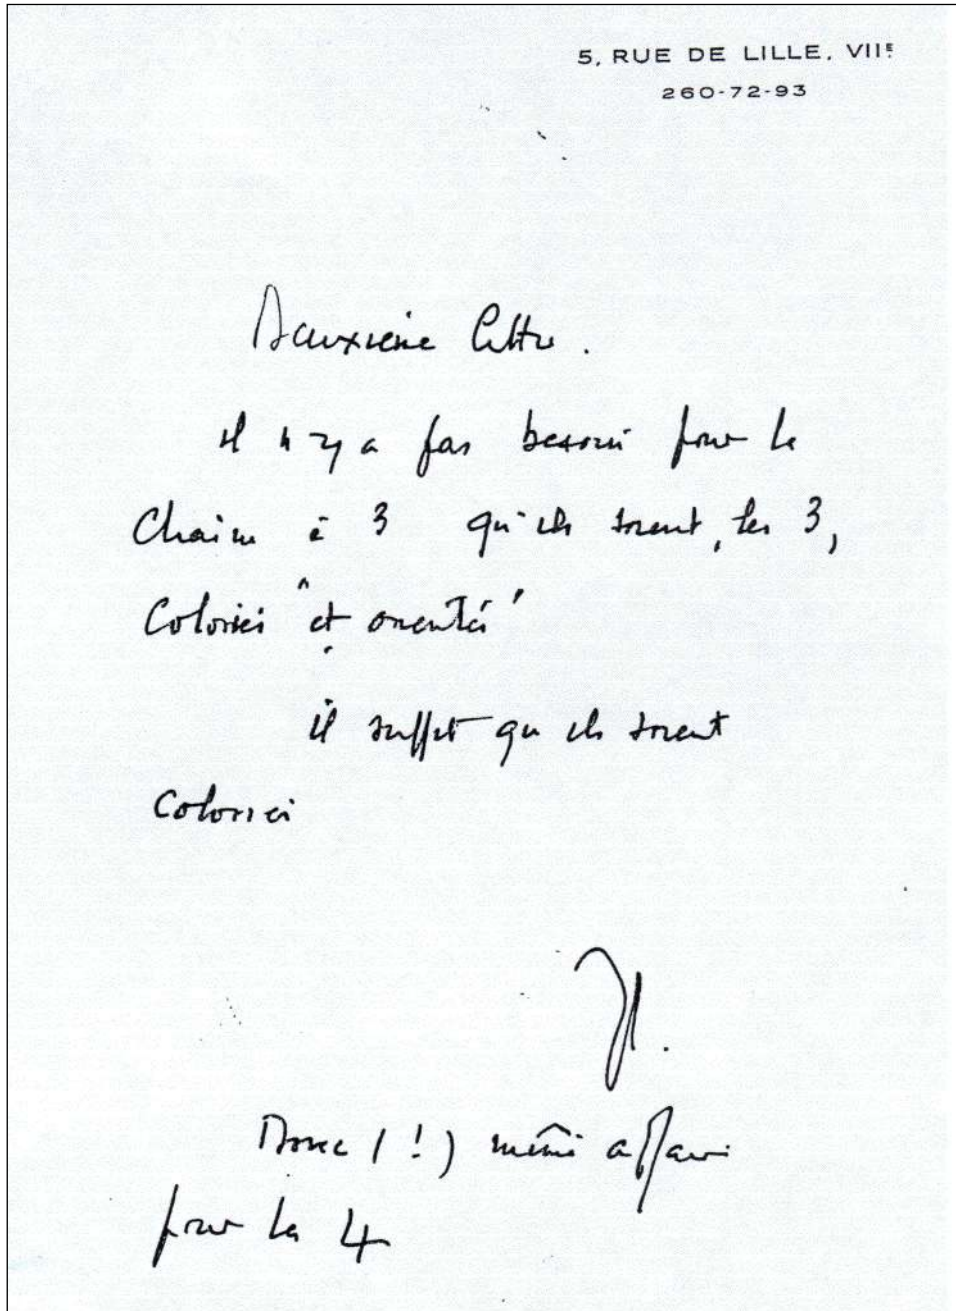 5, RUE DE LILLE, VIIE
260-72-93
Deuxième lettre.
il n'y a pas besoin pour la
Chaîne à 3 qu'ils soient, les 3,
Coloriés "et orientés"
il suffit qu'ils soient
Coloriés
JL.
Donc (!) même affaire
pour les 4